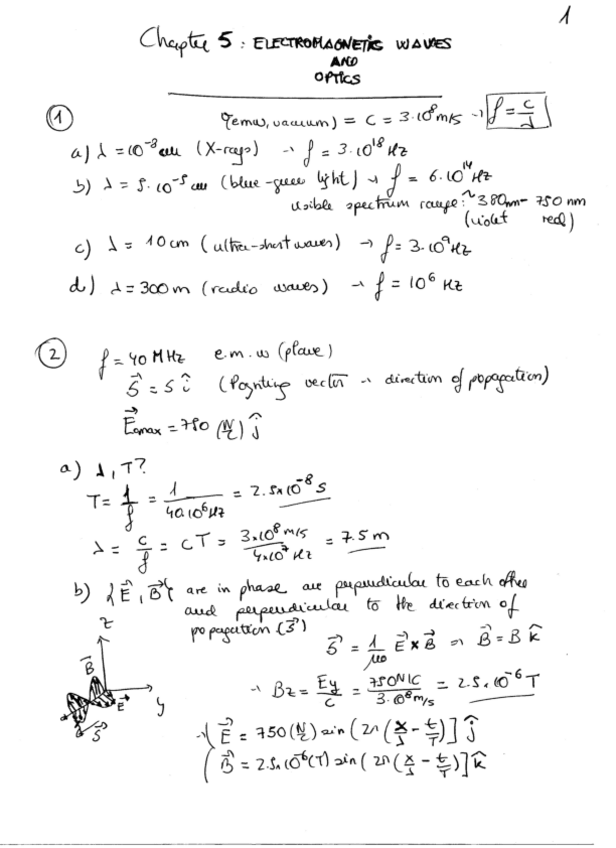 1
Chapter 5: ELECTROMAGNETIC WAVES
AND
OPTICS
① (emw, vacuum) = c = 3·10⁸ m/s → f = c/λ
a) λ = 10⁻⁸ cm (X-rays) → f = 3·10¹⁸ Hz
b) λ = 5·10⁻⁵ cm (blue-green light) → f = 6·10¹⁴ Hz
visible spectrum range: ~380nm - 750 nm
(violet red)
c) λ = 10 cm (ultra-short waves) → f = 3·10⁹ Hz
d) λ = 300 m (radio waves) → f = 10⁶ Hz
② f = 40 MHz e.m.w (plane)
S⃗ = S î (Poynting vector → direction of propagation)
E⃗max = 750 (N/C) ĵ
a) λ, T?
T = 1/f = 1/40·10⁶Hz = 2.5×10⁻⁸ s
λ = c/f = cT = 3×10⁸ m/s / 4×10⁷ Hz = 7.5 m
b) {E⃗, B⃗} are in phase are perpendicular to each other
and perpendicular to the direction of
propagation (S⃗)
S⃗ = 1/μ₀ E⃗ × B⃗ ⇒ B⃗ = B k̂
→ Bz = Ey/c = 750N/C / 3·10⁸ m/s = 2.5×10⁻⁶ T
z
B⃗
E⃗
y
S⃗
→ { E⃗ = 750 (N/C) sin(2π(x/λ - t/T)] ĵ
B⃗ = 2.5×10⁻⁶(T) sin(2π(x/λ - t/T)] k̂